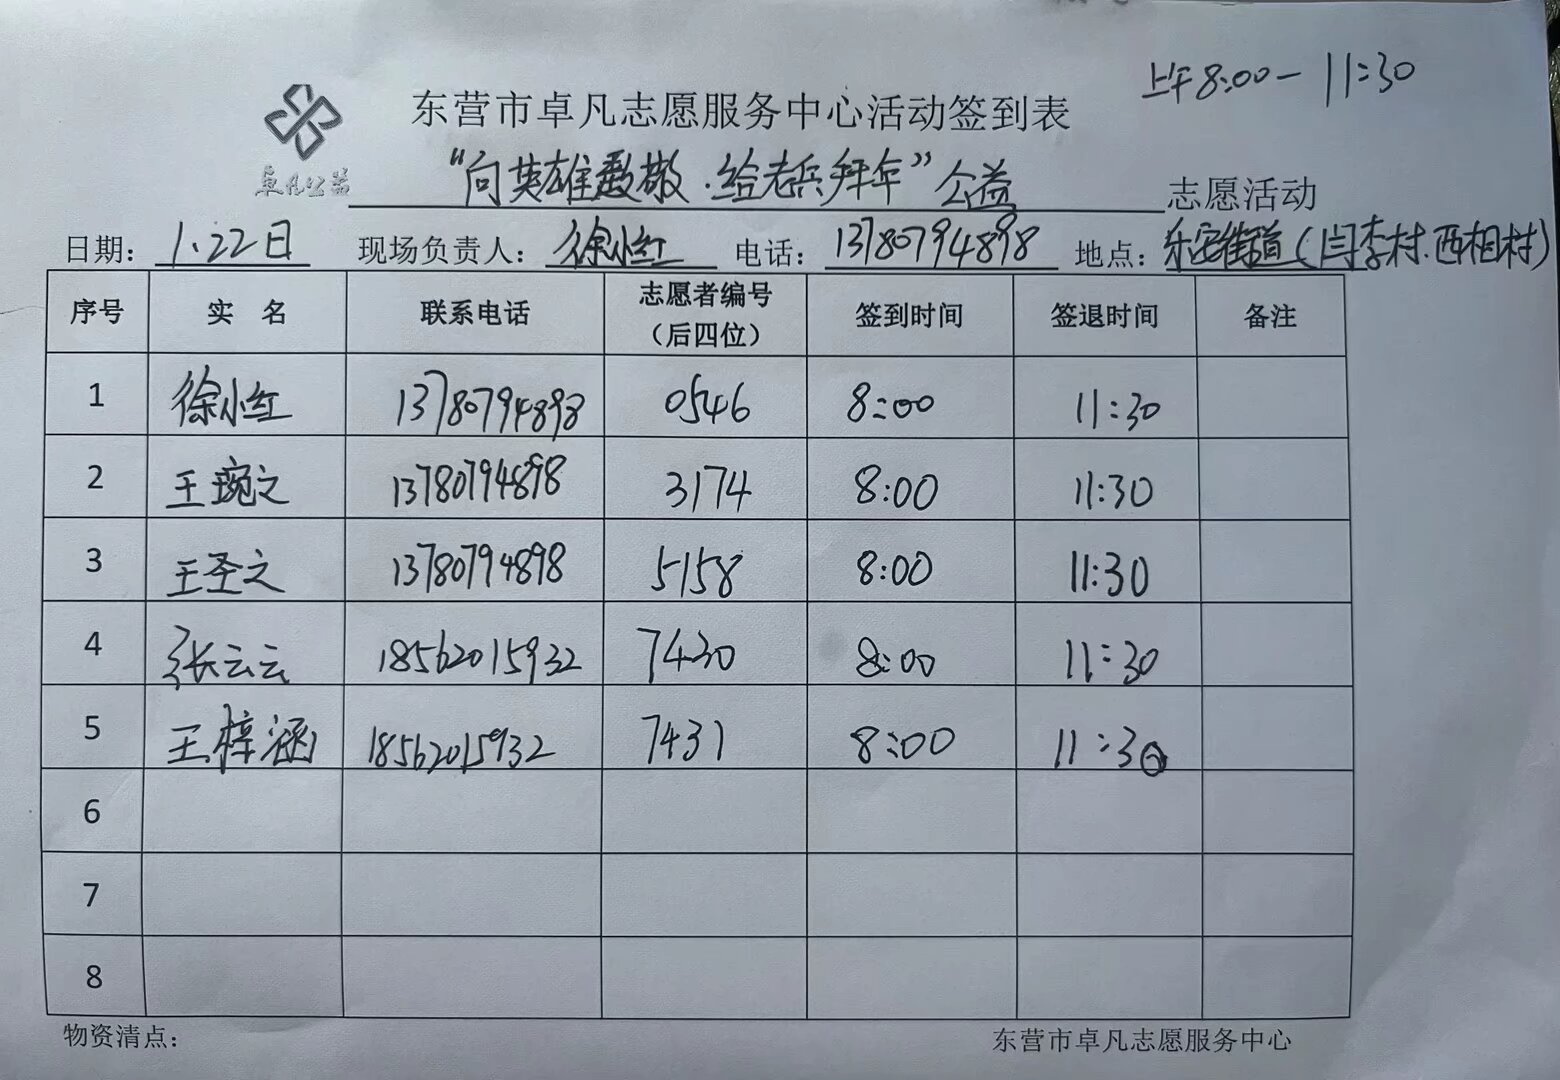 上午8:00-11:30
东营市卓凡志愿服务中心活动签到表
卓凡公益
“向英雄致敬.给老兵拜年”公益 志愿活动
日期: 1.22日 现场负责人: 徐小红 电话: 13780794898 地点: 东宝街道(闫李村.西相村)
序号 实 名 联系电话 志愿者编号(后四位) 签到时间 签退时间 备注
1 徐小红 13780794898 0546 8:00 11:30
2 王琬之 13780794898 3174 8:00 11:30
3 王圣之 13780794898 5158 8:00 11:30
4 张云云 18562015932 7430 8:00 11:30
5 王梓涵 18562015932 7431 8:00 11:30
6
7
8
物资清点: 东营市卓凡志愿服务中心